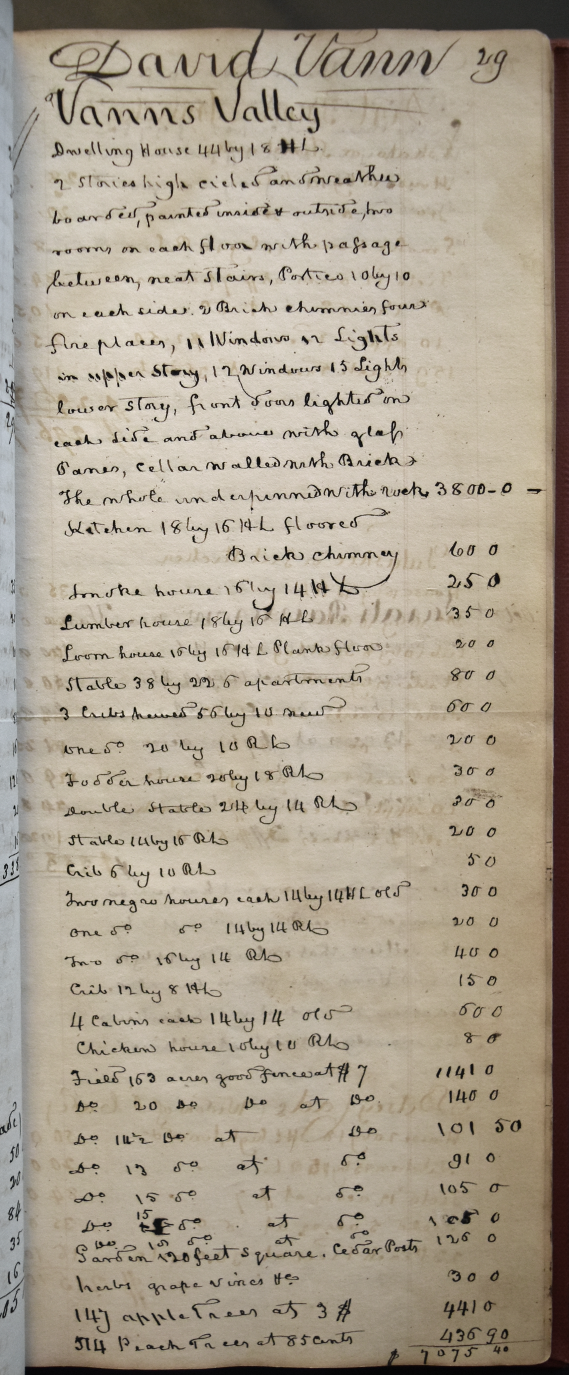 David Vann 29
Vanns Valley
Dwelling House 44 by 18 HL
2 Stories high cieled and weather
boarded, painted inside & outside, two
rooms on each floor with passage
between, neat Stairs, Portico 10 by 10
on each side. 2 Brick chimnies four
fire places, 11 Windows 12 Lights
in upper Story, 12 Windows 15 Lights
lower story, front doors lighted on
each side and above with glass
Panes, Cellar walled with Brick
The whole underpinned with rock, 3800-0
Kitchen 18 by 16 HL floored
Brick chimney 60 0
Smoke house 16 by 14 HL 25 0
Lumber house 18 by 16 HL 35 0
Loom house 16 by 16 HL Plank floor 20 0
Stable 38 by 22 6 apartments 80 0
3 Cribs hewed 56 by 10 new 60 0
one do 20 by 10 RL 20 0
Fodder house 20 by 18 RL 30 0
Double Stable 24 by 14 RL 30 0
Stable 14 by 16 RL 20 0
Crib 6 by 10 RL 5 0
Two negro houses each 14 by 14 HL old 30 0
one do do 14 by 14 RL 20 0
Two do 16 by 14 RL 40 0
Crib 12 by 8 HL 15 0
4 Cabins each 14 by 14 old 60 0
Chicken house 10 by 10 RL 8 0
Field 163 acres good fence at $7 1141 0
Do 20 Do Do at Do 140 0
Do 14½ Do at Do 101 50
Do 13 do at do 91 0
Do 15 do at do 105 0
Do 15 do at do 105 0
Do 18 do at do 126 0
Garden 120 feet Square. Cedar Posts
herbs grape vines &c 30 0
147 apple Trees at 3 $ 441 0
514 Peach Trees at 85 cents 436 90
$ 7075 40